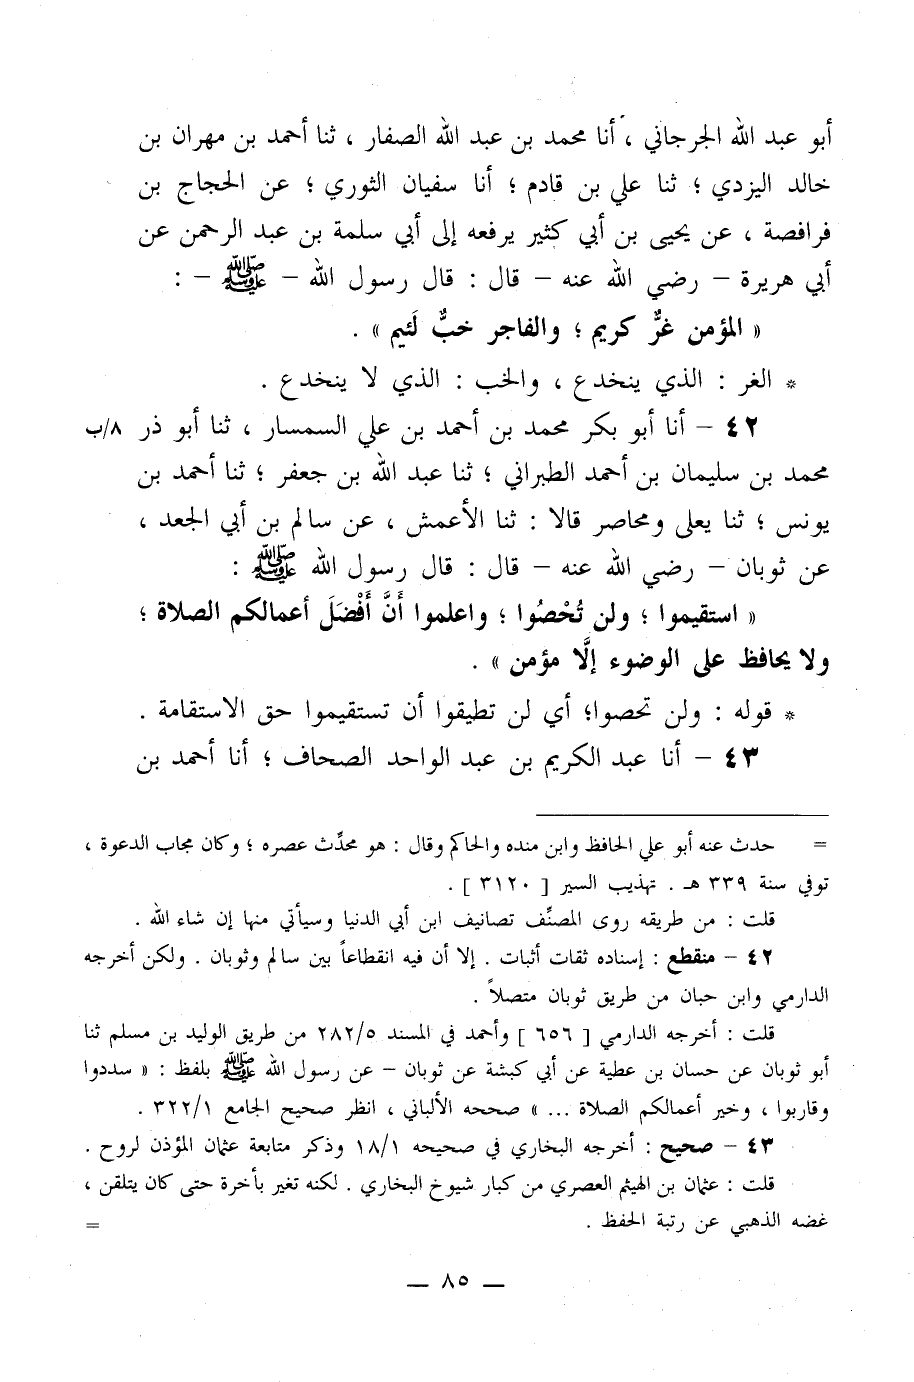 أبو عبد الله الجرجاني ، أنا محمد بن عبد الله الصفار ، ثنا أحمد بن مهران بن
خالد اليزدي ؛ ثنا علي بن قادم ؛ أنا سفيان الثوري ؛ عن الحجاج بن
فرافصة ، عن يحيى بن أبي كثير يرفعه إلى أبي سلمة بن عبد الرحمن عن
أبي هريرة – رضي الله عنه – قال : قال رسول الله – ﷺ – :
« المؤمن غرٌّ كريم ؛ والفاجر خبٌّ لَئيم » .
* الغر : الذي ينخدع ، والخب : الذي لا ينخدع .
٤٢ – أنا أبو بكر محمد بن أحمد بن علي السمسار ، ثنا أبو ذر ٨/ب
محمد بن سليمان بن أحمد الطبراني ؛ ثنا عبد الله بن جعفر ؛ ثنا أحمد بن
يونس ؛ ثنا يعلى ومحاصر قالا : ثنا الأعمش ، عن سالم بن أبي الجعد ،
عن ثوبان – رضي الله عنه – قال : قال رسول الله ﷺ :
« استقيموا ؛ ولن تُحْصُوا ؛ واعلموا أَنَّ أَفْضَلَ أعمالكم الصلاة ؛
ولا يحافظ على الوضوء إلَّا مؤمن » .
* قوله : ولن تحصوا؛ أي لن تطيقوا أن تستقيموا حق الاستقامة .
٤٣ – أنا عبد الكريم بن عبد الواحد الصحاف ؛ أنا أحمد بن
= حدث عنه أبو علي الحافظ وابن منده والحاكم وقال : هو محدِّث عصره ؛ وكان مجاب الدعوة ،
توفي سنة ٣٣٩ هـ . تهذيب السير [ ٣١٢٠ ] .
قلت : من طريقه روى المصنِّف تصانيف ابن أبي الدنيا وسيأتي منها إن شاء الله .
٤٢ – منقطع : إسناده ثقات أثبات . إلا أن فيه انقطاعاً بين سالم وثوبان . ولكن أخرجه
الدارمي وابن حبان من طريق ثوبان متصلاً .
قلت : أخرجه الدارمي [ ٦٥٦ ] وأحمد في المسند ٢٨٢/٥ من طريق الوليد بن مسلم ثنا
أبو ثوبان عن حسان بن عطية عن أبي كبشة عن ثوبان – عن رسول الله ﷺ بلفظ : « سددوا
وقاربوا ، وخير أعمالكم الصلاة ... » صححه الألباني ، انظر صحيح الجامع ٣٢٢/١ .
٤٣ – صحيح : أخرجه البخاري في صحيحه ١٨/١ وذكر متابعة عثمان المؤذن لروح .
قلت : عثمان بن الهيثم العصري من كبار شيوخ البخاري . لكنه تغير بأخرة حتى كان يتلقن ،
غضه الذهبي عن رتبة الحفظ . =
— ٨٥ —